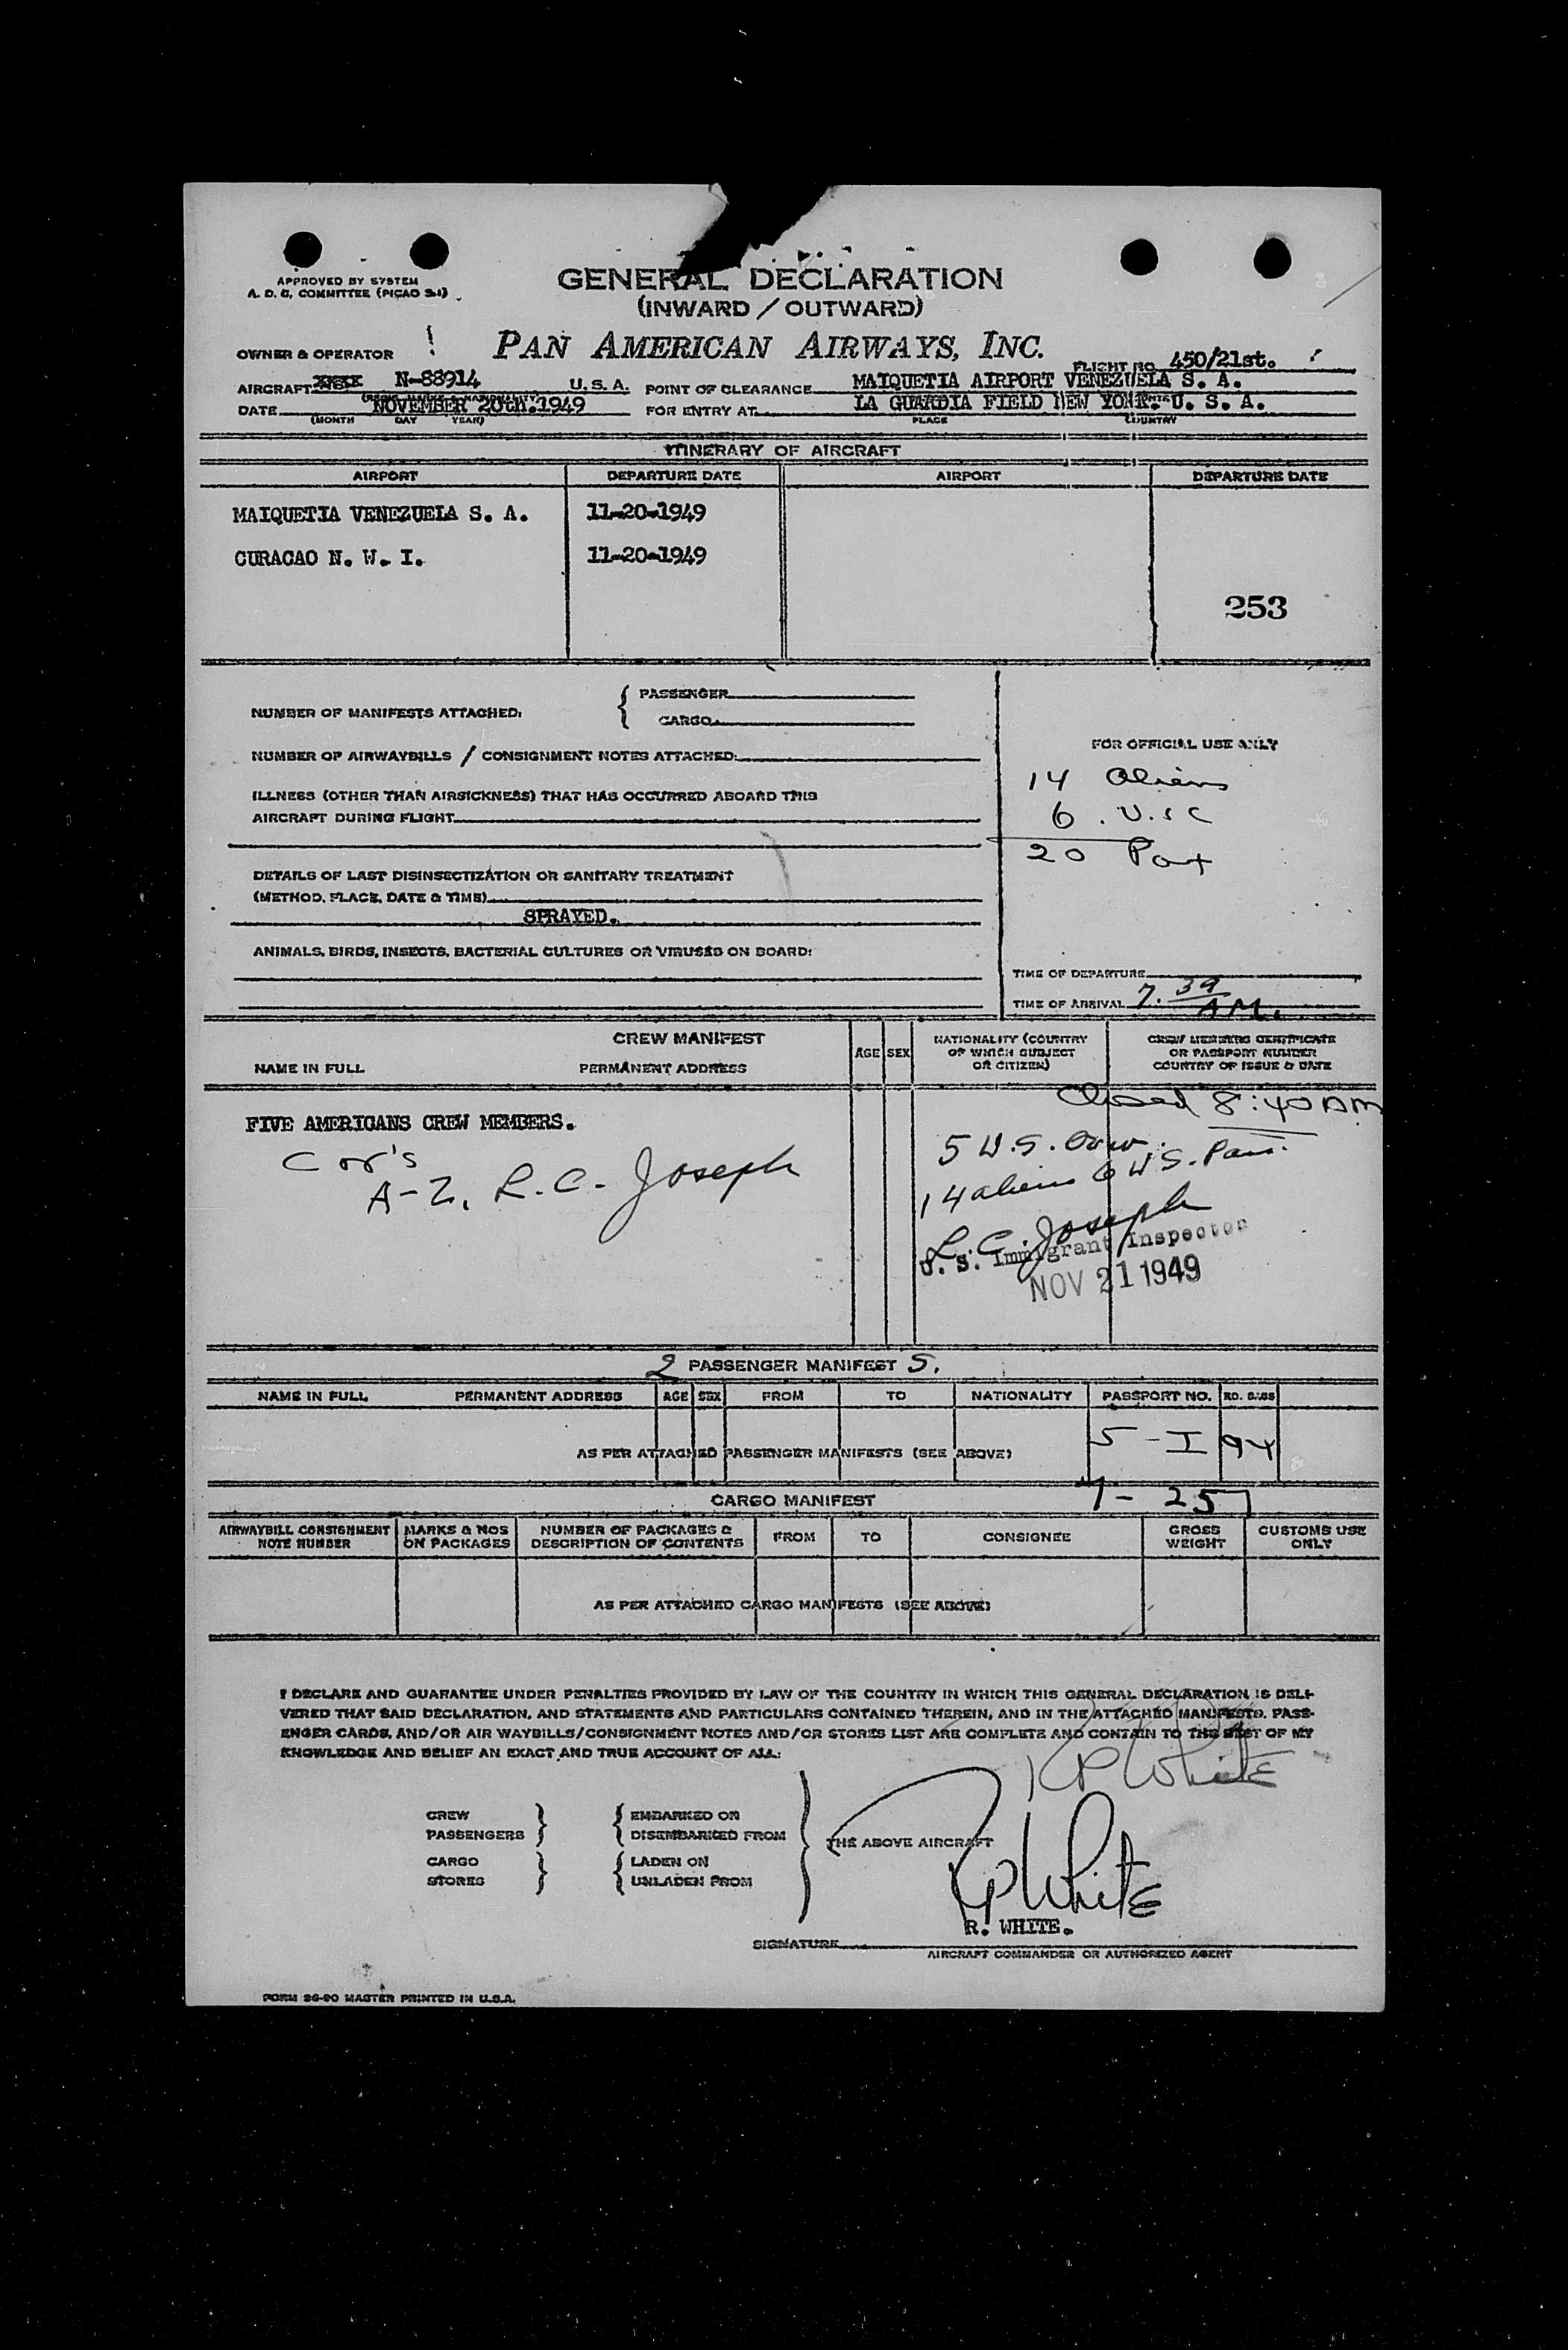 APPROVED BY SYSTEM
A. D. C. COMMITTEE (PICAO 9-1)
GENERAL DECLARATION
(INWARD / OUTWARD)
OWNER & OPERATOR
PAN AMERICAN AIRWAYS, INC.
FLIGHT NO. 450/21st.
AIRCRAFT N-88914 U. S. A. POINT OF CLEARANCE MAIQUETIA AIRPORT VENEZUELA S. A.
DATE NOVEMBER 20th.1949 FOR ENTRY AT LA GUARDIA FIELD NEW YORK. U. S. A.
(MONTH DAY YEAR) PLACE COUNTRY
ITINERARY OF AIRCRAFT
AIRPORT DEPARTURE DATE AIRPORT DEPARTURE DATE
MAIQUETIA VENEZUELA S. A. 11-20-1949
CURACAO N. W. I. 11-20-1949
253
NUMBER OF MANIFESTS ATTACHED:
PASSENGER
CARGO
NUMBER OF AIRWAYBILLS / CONSIGNMENT NOTES ATTACHED:
ILLNESS (OTHER THAN AIRSICKNESS) THAT HAS OCCURRED ABOARD THIS
AIRCRAFT DURING FLIGHT
DETAILS OF LAST DISINSECTIZATION OR SANITARY TREATMENT
(METHOD, PLACE, DATE & TIME)
SPRAYED.
ANIMALS, BIRDS, INSECTS, BACTERIAL CULTURES OR VIRUSES ON BOARD:
FOR OFFICIAL USE ONLY
14 Aliens
6 . U.S C
20 Pax
TIME OF DEPARTURE
TIME OF ARRIVAL 7.39 AM.
CREW MANIFEST
NAME IN FULL PERMANENT ADDRESS AGE SEX
NATIONALITY (COUNTRY
OF WHICH SUBJECT
OR CITIZEN)
CREW MEMBERS CERTIFICATE
OR PASSPORT NUMBER
COUNTRY OF ISSUE & DATE
Closed 8:40 AM
FIVE AMERICANS CREW MEMBERS.
Cor's
A-2, L.C. Joseph
5 U.S. Crew.
14 aliens 6 U S. Pass.
L. C. Joseph
U. S. Immigrant Inspector
NOV 21 1949
2 PASSENGER MANIFEST S.
NAME IN FULL PERMANENT ADDRESS AGE SEX FROM TO NATIONALITY PASSPORT NO. NO. BAGS
AS PER ATTACHED PASSENGER MANIFESTS (SEE ABOVE)
5 - I 94
CARGO MANIFEST
7 - 257
AIRWAYBILL CONSIGNMENT
NOTE NUMBER
MARKS & NOS
ON PACKAGES
NUMBER OF PACKAGES &
DESCRIPTION OF CONTENTS
FROM TO CONSIGNEE
GROSS
WEIGHT
CUSTOMS USE
ONLY
AS PER ATTACHED CARGO MANIFESTS (SEE ABOVE)
I DECLARE AND GUARANTEE UNDER PENALTIES PROVIDED BY LAW OF THE COUNTRY IN WHICH THIS GENERAL DECLARATION IS DELI-
VERED THAT SAID DECLARATION, AND STATEMENTS AND PARTICULARS CONTAINED THEREIN, AND IN THE ATTACHED MANIFESTS, PASS-
ENGER CARDS, AND/OR AIR WAYBILLS/CONSIGNMENT NOTES AND/OR STORES LIST ARE COMPLETE AND CONTAIN TO THE BEST OF MY
KNOWLEDGE AND BELIEF AN EXACT AND TRUE ACCOUNT OF ALL:
RP White
CREW
PASSENGERS
CARGO
STORES
EMBARKED ON
DISEMBARKED FROM
LADEN ON
UNLADEN FROM
THE ABOVE AIRCRAFT
RP White
R. WHITE.
SIGNATURE
AIRCRAFT COMMANDER OR AUTHORIZED AGENT
FORM 26-90 MASTER PRINTED IN U.S.A.